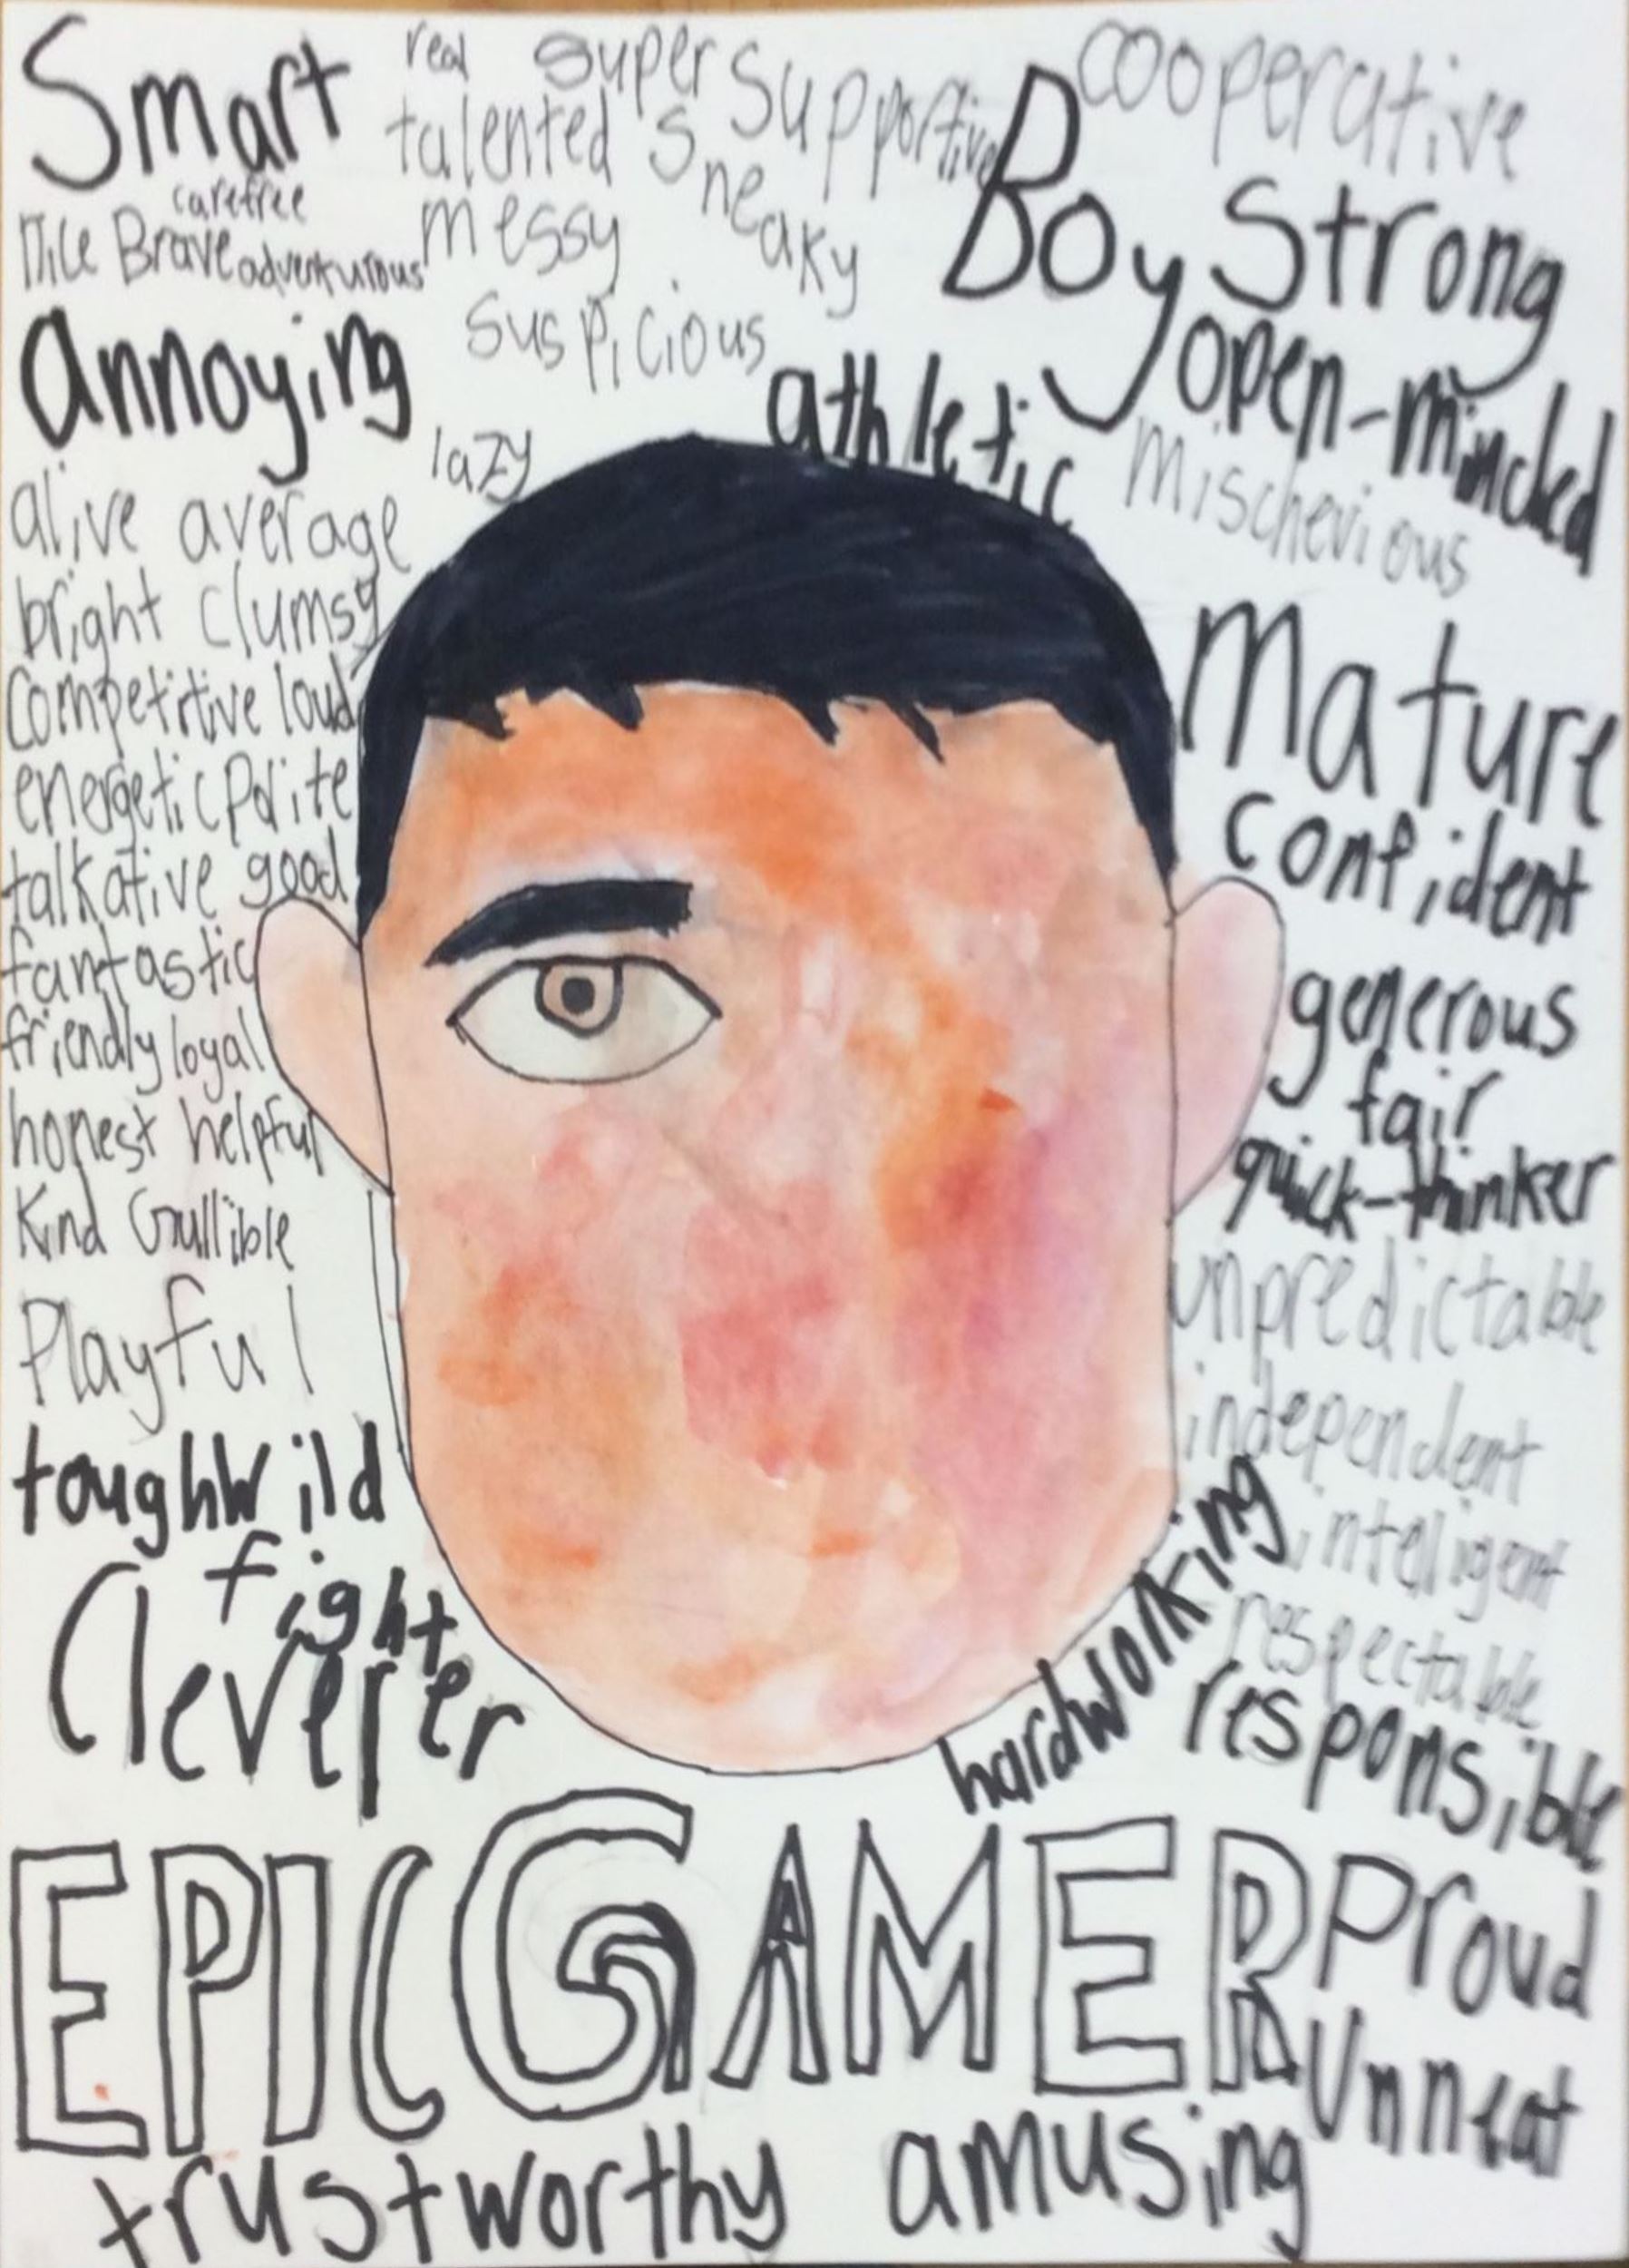 Smart real super supportive cooperative
talented sneaky Boy
carefree
nice Brave adventurous messy Strong
annoying suspicious open-minded
lazy athletic mischevious
alive average
bright clumsy
competitive loud Mature
energetic polite confident
talkative good
fantastic generous
friendly loyal fair
honest helpful quick-thinker
Kind Gullible unpredictable
Playful independent
tough Wild intelligent
fight hardworking respectable
Cleverer responsible
EPIC GAMER Proud
Unneat
trustworthy amusing